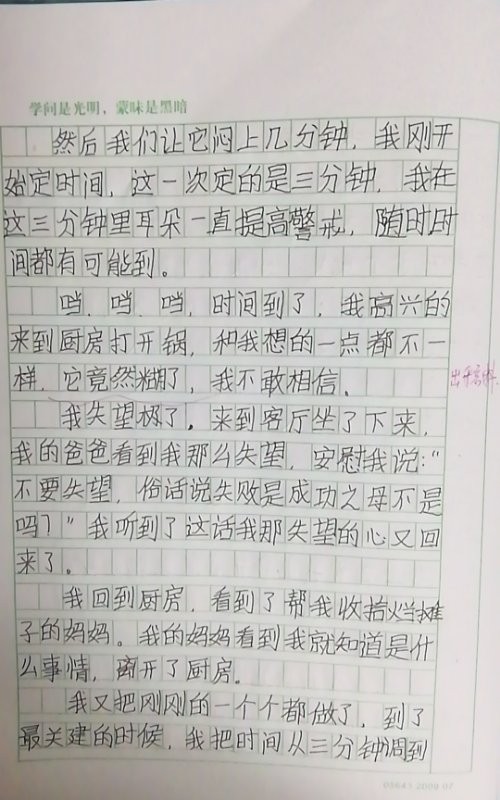 学问是光明，蒙昧是黑暗
然后我们让它闷上几分钟，我刚开
始定时间，这一次定的是三分钟，我在
这三分钟里耳朵一直提高警戒，随时时
间都有可能到。
当，当，当，时间到了，我高兴的
来到厨房打开锅，和我想的一点都不一
样，它竟然糊了，我不敢相信。
出乎意料
我失望极了，来到客厅坐了下来，
我的爸爸看到我那么失望，安慰我说：“
不要失望，俗话说失败是成功之母不是
吗？”我听到了这话我那失望的心又回
来了。
我回到厨房，看到了帮我收拾烂摊
子的妈妈。我的妈妈看到我就知道是什
么事情，离开了厨房。
我又把刚刚的一个个都做了，到了
最关建的时候，我把时间从三分钟调到